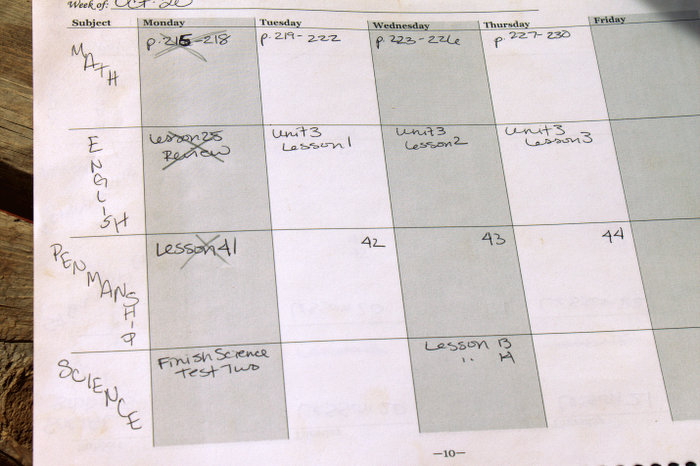 Week of: Oct. 20
Subject Monday Tuesday Wednesday Thursday Friday
MATH p. 215-218 p. 219-222 p. 223-226 p. 227-230
ENGLISH Lesson 25 Unit 3 Unit 3 Unit 3
Review Lesson 1 Lesson 2 Lesson 3
PENMANSHIP Lesson 41 42 43 44
SCIENCE Finish Science Lesson 13
Test Two " 14
-10-